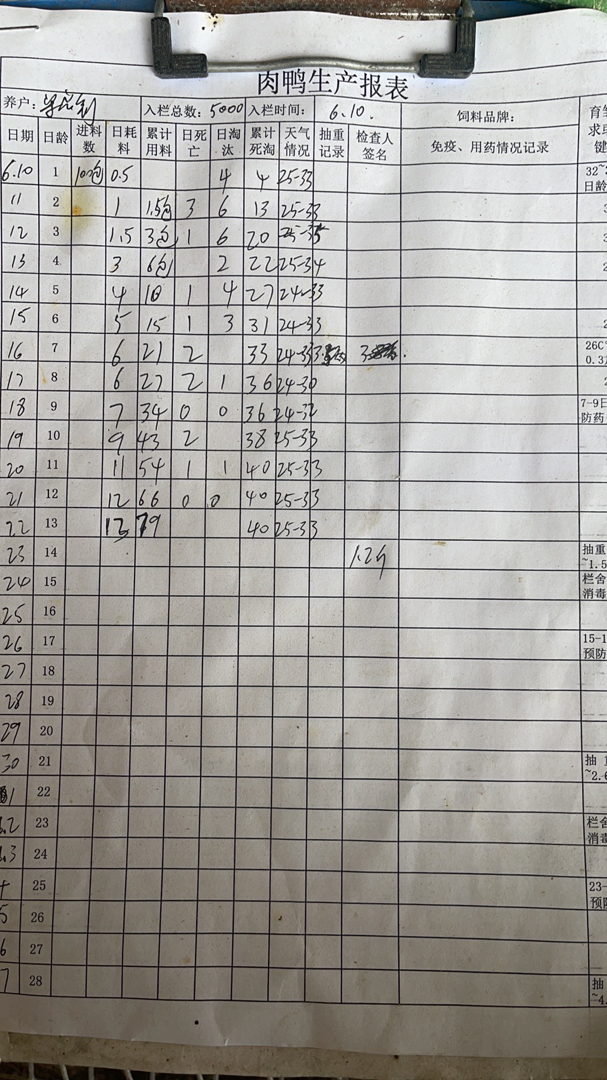 肉鸭生产报表
养户： 入栏总数：5000 入栏时间：6.10. 饲料品牌：
日期 日龄 进料数 日耗料 累计用料 日死亡 日淘汰 累计死淘 天气情况 抽重记录 检查人签名 免疫、用药情况记录
6.10 1 100包 0.5 4 4 25-33 32~
日龄
11 2 1 1.5包 3 6 13 25-33
12 3 1.5 3包 1 6 20 25-35
13 4 3 6包 2 22 25-34
14 5 4 10 1 4 27 24-33
15 6 5 15 1 3 31 24-33
16 7 6 21 2 33 24-33 26C°
0.3
17 8 6 27 2 1 36 24-30
18 9 7 34 0 0 36 24-32 7-9日
防药
19 10 9 43 2 38 25-33
20 11 11 54 1 1 40 25-33
21 12 12 66 0 0 40 25-33
22 13 13 79 40 25-33
23 14 1.2斤 抽重
~1.5
24 15 栏舍
消毒
25 16
26 17 15-1
预防
27 18
28 19
29 20
30 21 抽
~2.6
1 22
.2 23 栏舍
消毒
.3 24
4 25 23-
预防
5 26
6 27
7 28 抽
~4.